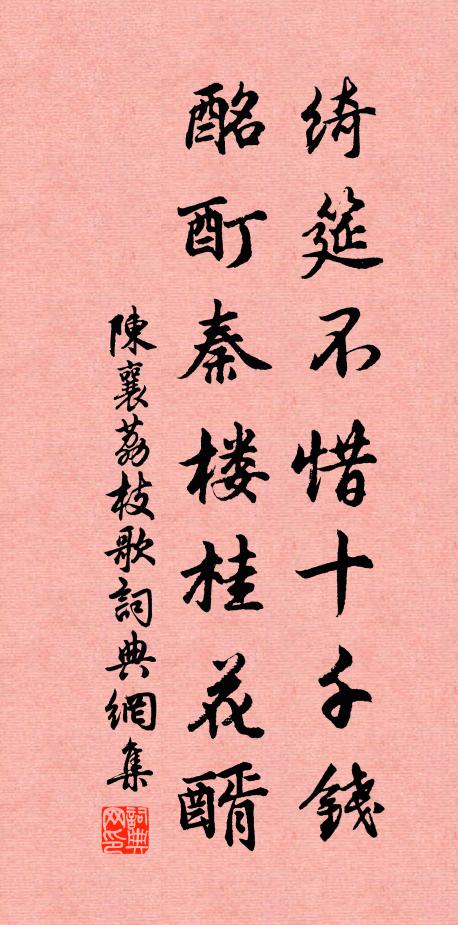 绮筵不惜十千錢
酩酊秦楼桂花醑
陳襄荔枝歌詞典網集
詞典网印